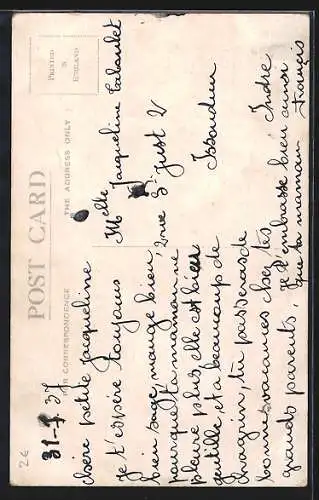 POST CARD
FOR CORRESPONDENCE
THE ADDRESS ONLY
PRINTED
IN
ENGLAND
2€
31-7-37
chère petite Jacqueline
je t'espère toujours
bien sage, mange bien,
pourque ta maman ne
pleure plus elle est bien
gentille, et a beaucoup de
chagrin, tu passeras de
bonnes vacances chez tes
grands parents,
je t'embrasse bien ainsi
que ta maman
Francis
Melle Jacqueline Cabaulet
rue St Just 2
Issoudun
Indre